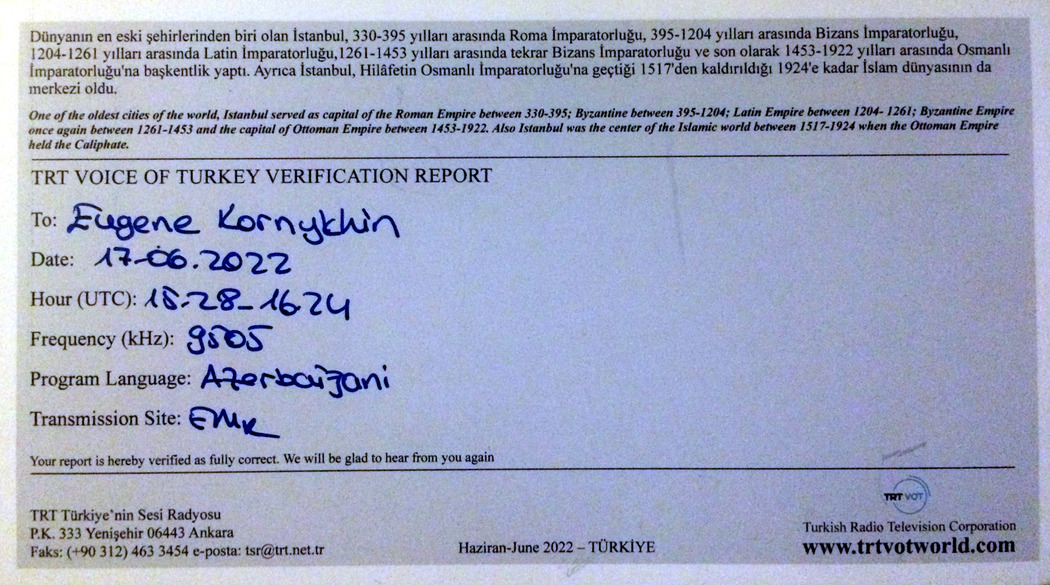 Dünyanın en eski şehirlerinden biri olan İstanbul, 330-395 yılları arasında Roma İmparatorluğu, 395-1204 yılları arasında Bizans İmparatorluğu,
1204-1261 yılları arasında Latin İmparatorluğu,1261-1453 yılları arasında tekrar Bizans İmparatorluğu ve son olarak 1453-1922 yılları arasında Osmanlı
İmparatorluğu'na başkentlik yaptı. Ayrıca İstanbul, Hilâfetin Osmanlı İmparatorluğu'na geçtiği 1517'den kaldırıldığı 1924'e kadar İslam dünyasının da
merkezi oldu.
One of the oldest cities of the world, Istanbul served as capital of the Roman Empire between 330-395; Byzantine between 395-1204; Latin Empire between 1204- 1261; Byzantine Empire
once again between 1261-1453 and the capital of Ottoman Empire between 1453-1922. Also Istanbul was the center of the Islamic world between 1517-1924 when the Ottoman Empire
held the Caliphate.
TRT VOICE OF TURKEY VERIFICATION REPORT
To: Eugene Kornykhin
Date: 17-06.2022
Hour (UTC): 15.28-16.24
Frequency (kHz): 9505
Program Language: Azerbaijani
Transmission Site: EMR
Your report is hereby verified as fully correct. We will be glad to hear from you again
TRT VOT
TRT Türkiye'nin Sesi Radyosu
P.K. 333 Yenişehir 06443 Ankara
Faks: (+90 312) 463 3454 e-posta: tsr@trt.net.tr
Haziran-June 2022 – TÜRKİYE
Turkish Radio Television Corporation
www.trtvotworld.com